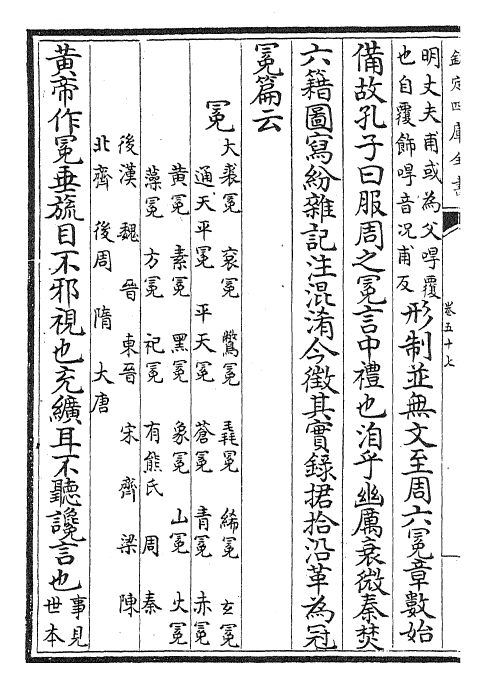 欽定四庫全書
卷五十七
明丈夫甫或為父哻覆
也自覆飾哻音况甫反
形制並無文至周六冕章數始
備故孔子曰服周之冕言中禮也洎乎幽厲衰微秦焚
六籍圖寫紛雜記注混淆今徵其實錄捃拾沿革為冠
冕篇云
冕
大裘冕 衮冕 鷩冕 毳冕 絺冕 玄冕
通天平冕 平天冕 蒼冕 青冕 赤冕
黄冕 素冕 黑冕 象冕 山冕 火冕
藻冕 方冕 祀冕 有熊氏 周 秦
後漢 魏 晉 東晉 宋 齊 梁 陳
北齊 後周 隋 大唐
黄帝作冕垂旒目不邪視也充纊耳不聽讒言也
事見
世本